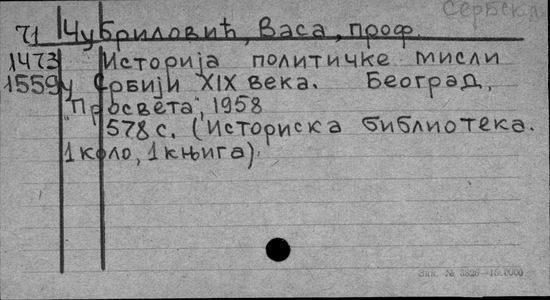 Сербск
71 Чубриловић, Васа, проф.
1473 Историја политичке мисли
1559 у Србији XIX века. Београд,
"Просвета", 1958
578 с. (Историска библиотека.
1 коло, 1 књига).
Зак. № 3826—15.0000